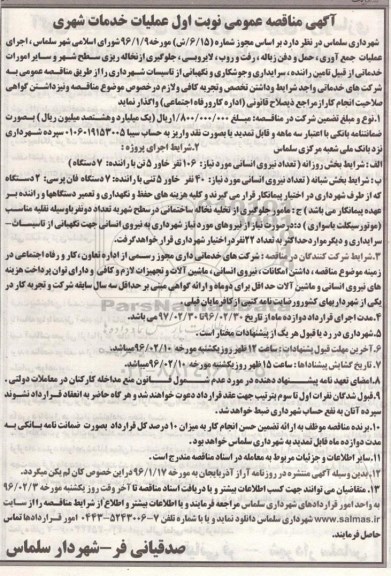 آگهی مناقصه عمومی نوبت اول عملیات خدمات شهری
شهرداری سلماس در نظر دارد بر اساس مجوز شماره (۶/۱۵/ش) مورخه ۹۶/۱/۹ شورای اسلامی شهر سلماس، اجرای
عملیات جمع آوری، حمل و دفن زباله، رفت و روب، لایروبی، جلوگیری از نخاله ریزی سطح شهر و سایر امورات
خدماتی از قبیل تامین راننده، سرایداری و جوشکاری و نگهبانی از تاسیسات شهرداری را از طریق مناقصه عمومی به
شرکت های خدماتی واجد شرایط و داشتن تخصص و تجربه کافی ولازم در خصوص موضوع مناقصه و نیز داشتن گواهی
صلاحیت انجام کار از مراجع ذیصلاح قانونی (اداره کار و رفاه اجتماعی) واگذار نماید
۱.نوع و مبلغ تضمین شرکت در مناقصه: مبلغ ۱/۸۰۰/۰۰۰/۰۰۰ ریال (یک میلیارد و هشتصد میلیون ریال) بصورت
ضمانتنامه بانکی با اعتبار سه ماهه و قابل تمدید یا بصورت نقد واریز به حساب سیبا ۰۱۰۶۰۱۹۱۵۳۰۰۵ سپرده شهرداری
نزد بانک ملی شعبه مرکزی سلماس ۲.شرایط اجرای پروژه:
الف: شرایط بخش روزانه (تعداد نیروی انسانی مورد نیاز: ۱۰۶ نفر خاور ۵ تنی با راننده: ۷ دستگاه)
ب: شرایط بخش شبانه (تعداد نیروی انسانی مورد نیاز: ۴۰ نفر خاور ۵ تنی با راننده: ۷ دستگاه فان پرسی: ۲ دستگاه
که از طرف شهرداری در اختیار پیمانکار قرار می گیرند و کلیه هزینه های حفظ و نگهداری و تعمیر دستگاهها و راننده بر
عهده پیمانکار می باشد) ج: مامور جلوگیری از تخلیه نخاله ساختمانی در سطح شهر به تعداد دو نفر با وسیله نقلیه مناسب
(موتورسیکلت یا سواری) د: در صورت نیاز از نیروهای مورد نیاز شهرداری به نیروی انسانی جهت نگهبانی از تاسیسات-
سرایداری و دیگر موارد حداکثر به تعداد ۲۲ نفر در اختیار شهرداری قرار خواهد گرفت.
۳.شرایط شرکت کنندگان در مناقصه: شرکت های خدماتی داری مجوز رسمی از اداره تعاون، کار و رفاه اجتماعی در
زمینه موضوع مناقصه، داشتن امکانات، نیروی انسانی، ماشین آلات و تجهیزات لازم و کافی و دارای توان پرداخت هزینه
های نیروی انسانی و ماشین آلات حداقل برای دو ماه و ارائه گواهی مبنی بر حداقل سه سال سابقه شرکت و تجربه کار در
یکی از شهرداریهای کشور و رضایت نامه کتبی از کارفرمایان قبلی.
۴.مدت اجرای قرارداد دوازده ماه از تاریخ ۹۶/۰۲/۳۰ تا ۹۷/۰۲/۳۰ می باشد.
۵.شهرداری در رد یا قبول هر یک از پیشنهادات مختار است.
۶.آخرین مهلت قبول پشنهادات: ساعت ۱۲ ظهر روز یکشنبه مورخه ۹۶/۰۲/۱۰ میباشد.
۷.تاریخ گشایش پیشنهادها: ساعت ۱۵ ظهر روز یکشنبه مورخه ۹۶/۰۲/۱۰ میباشد.
۸.امضای تعهد نامه پیشنهاد دهنده در مورد عدم شمول قانون منع مداخله کارکنان در معاملات دولتی.
۹.قبول شدگان نفرات اول تا سوم بترتیب جهت عقد قرارداد دعوت خواهند شد و هر گاه حاضر به انعقاد قرارداد نشوند
سپرده آنان به نفع حساب شهرداری ضبط خواهد شد.
۱۰.برنده مناقصه موظف به ارائه تضمین حسن انجام کار به میزان ۱۰ درصد کل قرارداد بصورت ضمانت نامه بانکی به
مدت دوازده ماه قابل تمدید به شهرداری سلماس خواهد بود.
۱۱.سایر اطلاعات و جزئیات مربوط به معامله در اسناد مناقصه مندرج است.
۱۲.بدین وسیله آگهی منتشره در روزنامه آراز آذربایجان به مورخه ۹۶/۱/۱۷ در این خصوص کان لم یکن میگردد.
۱۳.متقاضیان می توانند جهت کسب اطلاعات بیشتر و یا دریافت اسناد مناقصه تا آخر وقت روز یکشنبه مورخه ۹۶/۰۲/۳
به واحد امور قراردادهای شهرداری سلماس مراجعه فرمایند و یا اطلاعات بیشتر و اطلاع از شرایط مناقصه را از سایت
www.salmas.ir شهرداری سلماس دانلود نماید و یا با شماره تلفن ۷-۰۴۴۳-۵۲۴۳۰۰۶ امور قراردادها تماس
حاصل فرمایند.
صدقیانی فر-شهردار سلماس